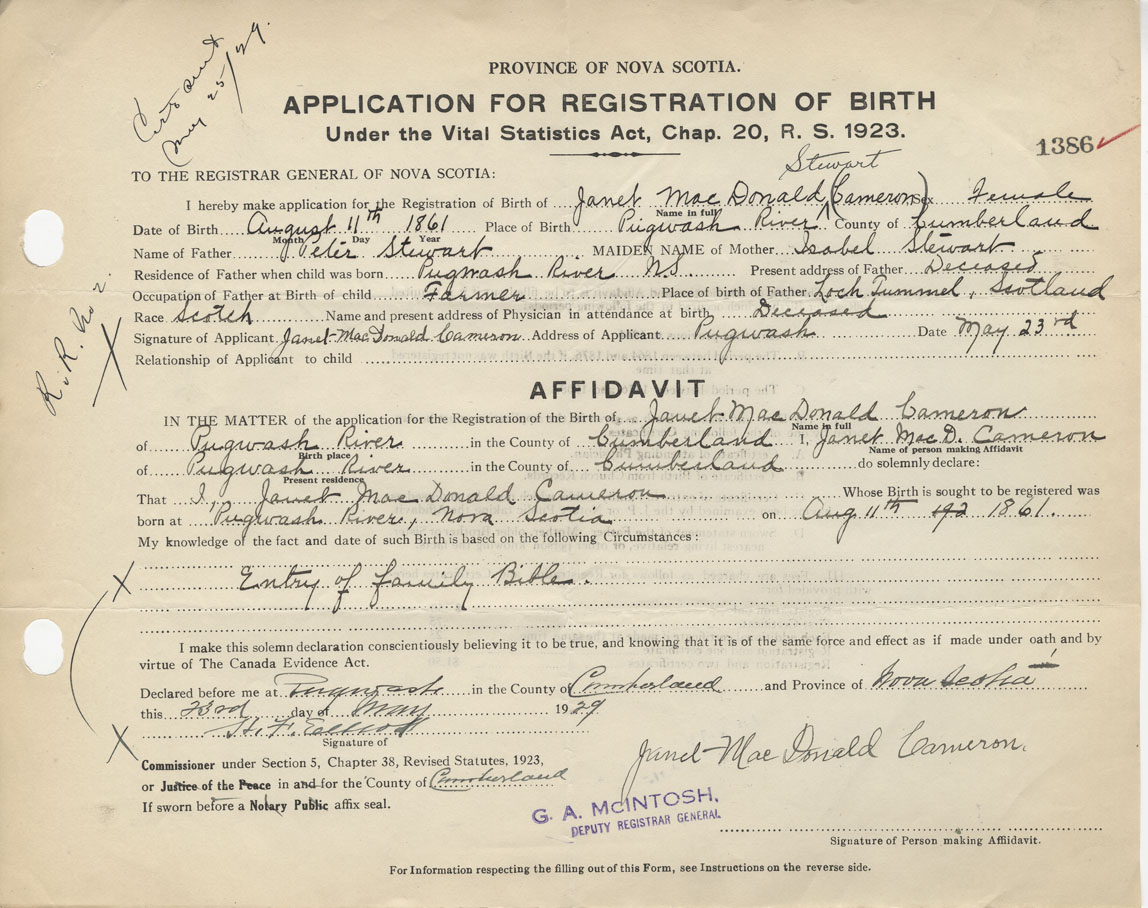 Cert sent
May 25/29.
PROVINCE OF NOVA SCOTIA.
APPLICATION FOR REGISTRATION OF BIRTH
Under the Vital Statistics Act, Chap. 20, R. S. 1923.
1386
Stewart
TO THE REGISTRAR GENERAL OF NOVA SCOTIA:
I hereby make application for the Registration of Birth of Janet MacDonald (Cameron) Sex Female
Name in full
Date of Birth August 11th 1861 Place of Birth Pugwash River County of Cumberland
Month Day Year
Name of Father J. Peter Stewart MAIDEN NAME of Mother Isabel Stewart
Residence of Father when child was born Pugwash River N.S. Present address of Father Deceased
Occupation of Father at Birth of child Farmer Place of birth of Father Loch Tummel, Scotland
Race Scotch Name and present address of Physician in attendance at birth Deceased
Signature of Applicant Janet MacDonald Cameron Address of Applicant Pugwash Date May 23rd
Relationship of Applicant to child
R. R. No 2
AFFIDAVIT
IN THE MATTER of the application for the Registration of the Birth of Janet MacDonald Cameron
Name in full
of Pugwash River in the County of Cumberland I, Janet MacD. Cameron
Birth place Name of person making Affidavit
of Pugwash River in the County of Cumberland do solemnly declare:
Present residence
That I, Janet MacDonald Cameron Whose Birth is sought to be registered was
born at Pugwash River, Nova Scotia on Aug 11th 192 1861.
My knowledge of the fact and date of such Birth is based on the following Circumstances:
X
Entry of family Bible.
I make this solemn declaration conscientiously believing it to be true, and knowing that it is of the same force and effect as if made under oath and by
virtue of The Canada Evidence Act.
Declared before me at Pugwash in the County of Cumberland and Province of Nova Scotia
this 23rd day of May 1929
H. F. Elliott
Signature of
X
Janet MacDonald Cameron.
Commissioner under Section 5, Chapter 38, Revised Statutes, 1923,
or Justice of the Peace in and for the County of Cumberland
If sworn before a Notary Public affix seal.
G. A. McINTOSH,
DEPUTY REGISTRAR GENERAL
Signature of Person making Affidavit.
For Information respecting the filling out of this Form, see Instructions on the reverse side.